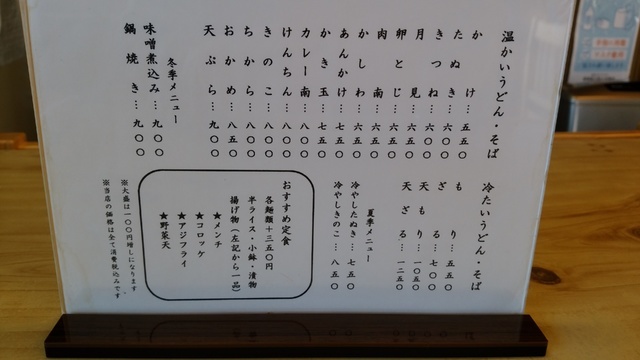 温かいうどん・そば
かけ…五五〇
たぬき…六〇〇
きつね…六〇〇
月見…六〇〇
卵とじ…六五〇
肉南…六五〇
かしわ…六五〇
あんかけ…七五〇
かき玉…七五〇
カレー南…八〇〇
けんちん…八〇〇
きのこ…八〇〇
ちから…八〇〇
おかめ…八五〇
天ぷら…九〇〇
冬季メニュー
味噌煮込み…九〇〇
鍋焼き…九〇〇
冷たいうどん・そば
もり…五五〇
ざる…七〇〇
天もり…一〇五〇
天ざる…一二五〇
夏季メニュー
冷やしたぬき…七五〇
冷やしきのこ…八五〇
おすすめ定食
各麺類+三五〇円
半ライス・小鉢・漬物
揚げ物(左記から一品)
★メンチ
★コロッケ
★アジフライ
★野菜天
※大盛は一〇〇円増しになります
※当店の価格は全て消費税込みです